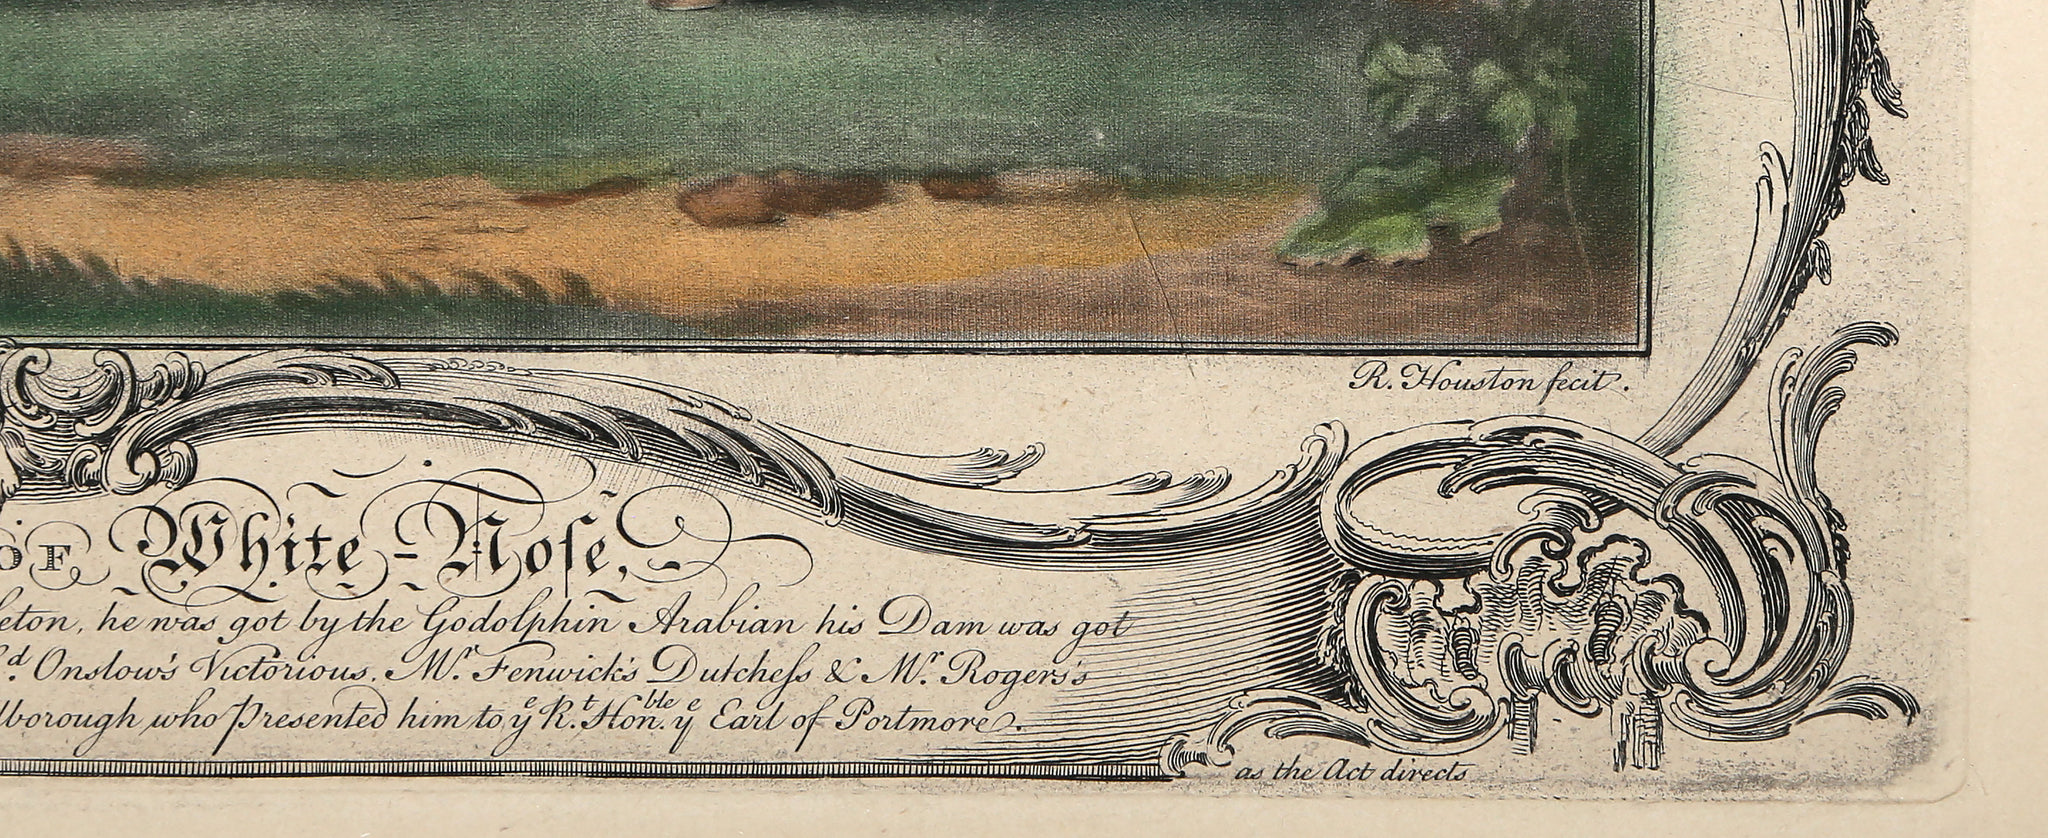 R. Houston fecit.
OF White-Nose,
eton, he was got by the Godolphin Arabian his Dam was got
d. Onslow's Victorious, Mr. Fenwick's Dutchess & Mr. Rogers's
lborough who presented him to ye Rt. Honble. ye Earl of Portmore.
as the Act directs